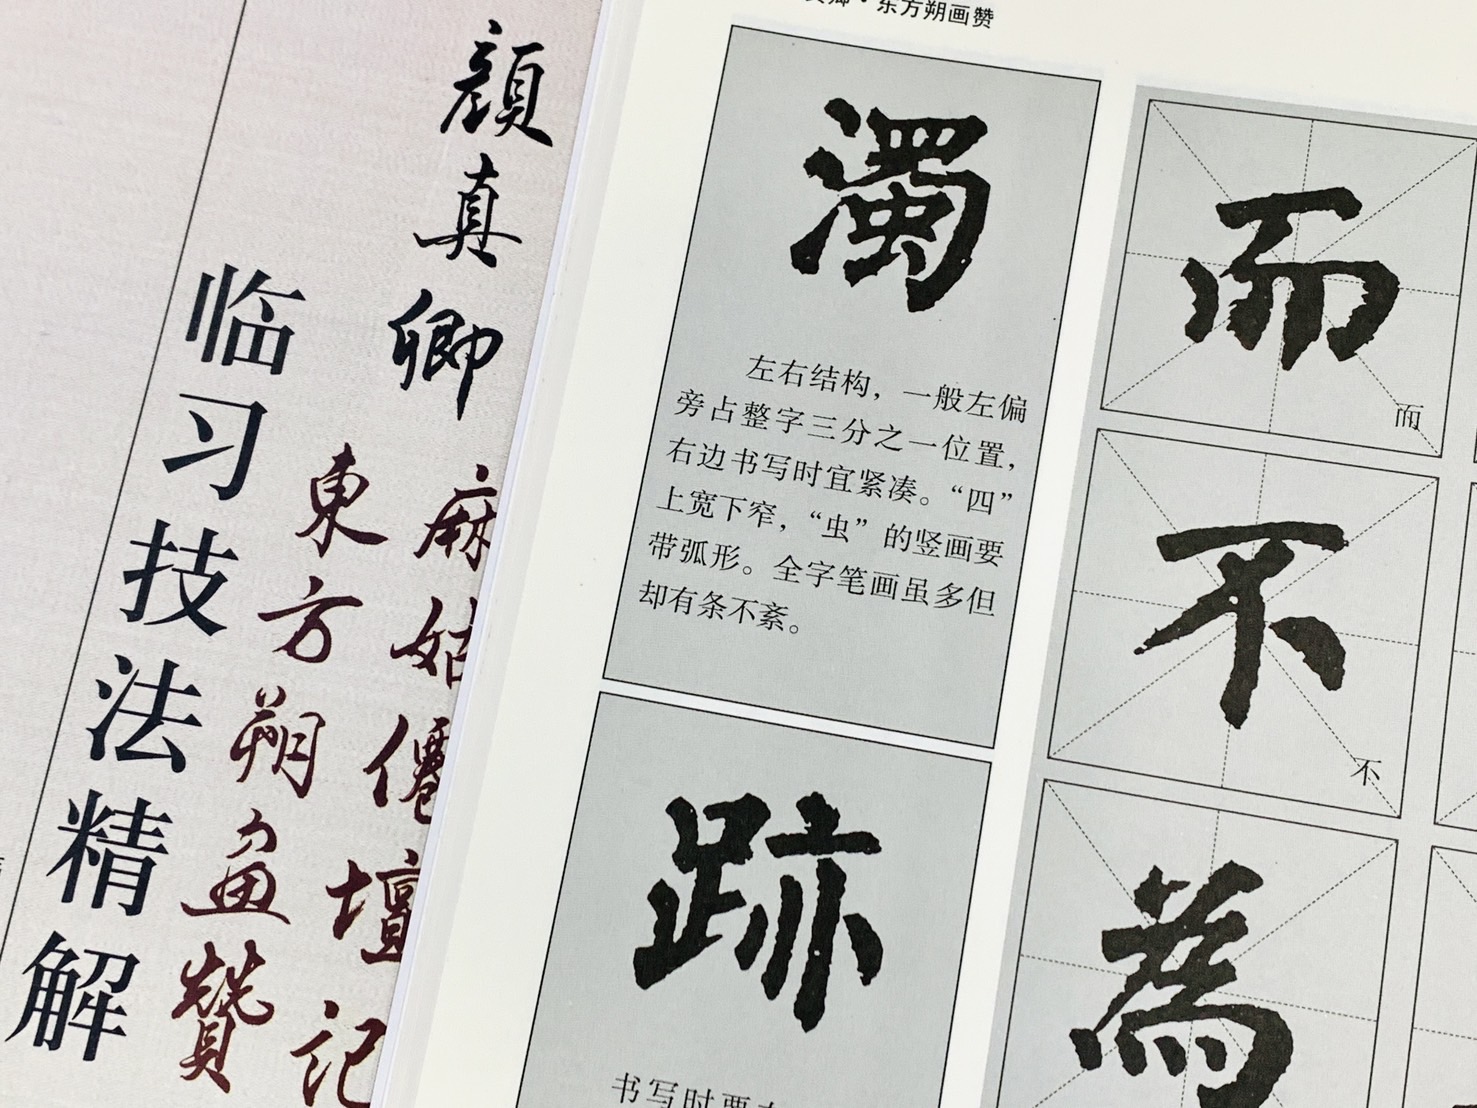 顔真卿
麻姑僊壇記
東方朔畫贊
临习技法精解
卿·东方朔画赞
濁
左右结构，一般左偏
旁占整字三分之一位置，
右边书写时宜紧凑。“四”
上宽下窄，“虫”的竖画要
带弧形。全字笔画虽多但
却有条不紊。
跡
书写时要
而
而
不
不
為